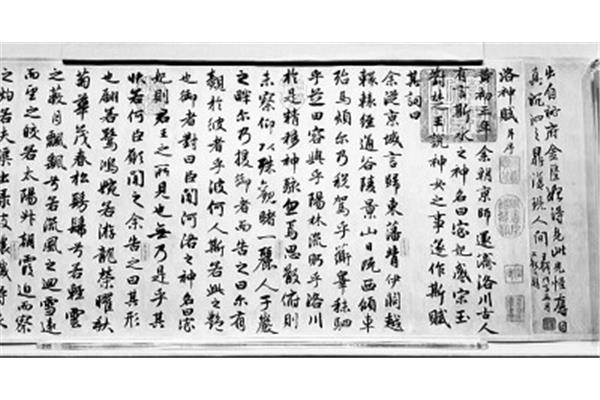 出自秘府金
真沉泗之鼎 人間
洛神賦 并序
黃初三年余朝京師還濟洛川古人
有言斯水之神名曰宓妃感宋玉
對楚王說神女之事遂作斯賦
其詞曰
余從京城言歸東藩背伊闕越
轘轅經通谷陵景山日既西傾車
殆馬煩尔乃稅駕乎蘅皋秣駟
乎芝田容與乎陽林流眄乎洛川
於是精移神駭忽焉思散俯則
未察仰以殊觀睹一麗人于巖
之畔尔乃援御者而告之曰尔有
覿於彼者乎彼何人斯若此之艷
也御者對曰臣聞河洛之神名曰宓
妃則君王之所見也無乃是乎其
狀若何臣願聞之余告之曰其形
也翩若驚鴻婉若游龍榮曜秋
菊華茂春松髣髴兮若輕雲
之蔽月飄飄兮若流風之迴雪遠
而望之皎若太陽升朝霞迫而察
之灼若夫蕖出淥波穠纖得